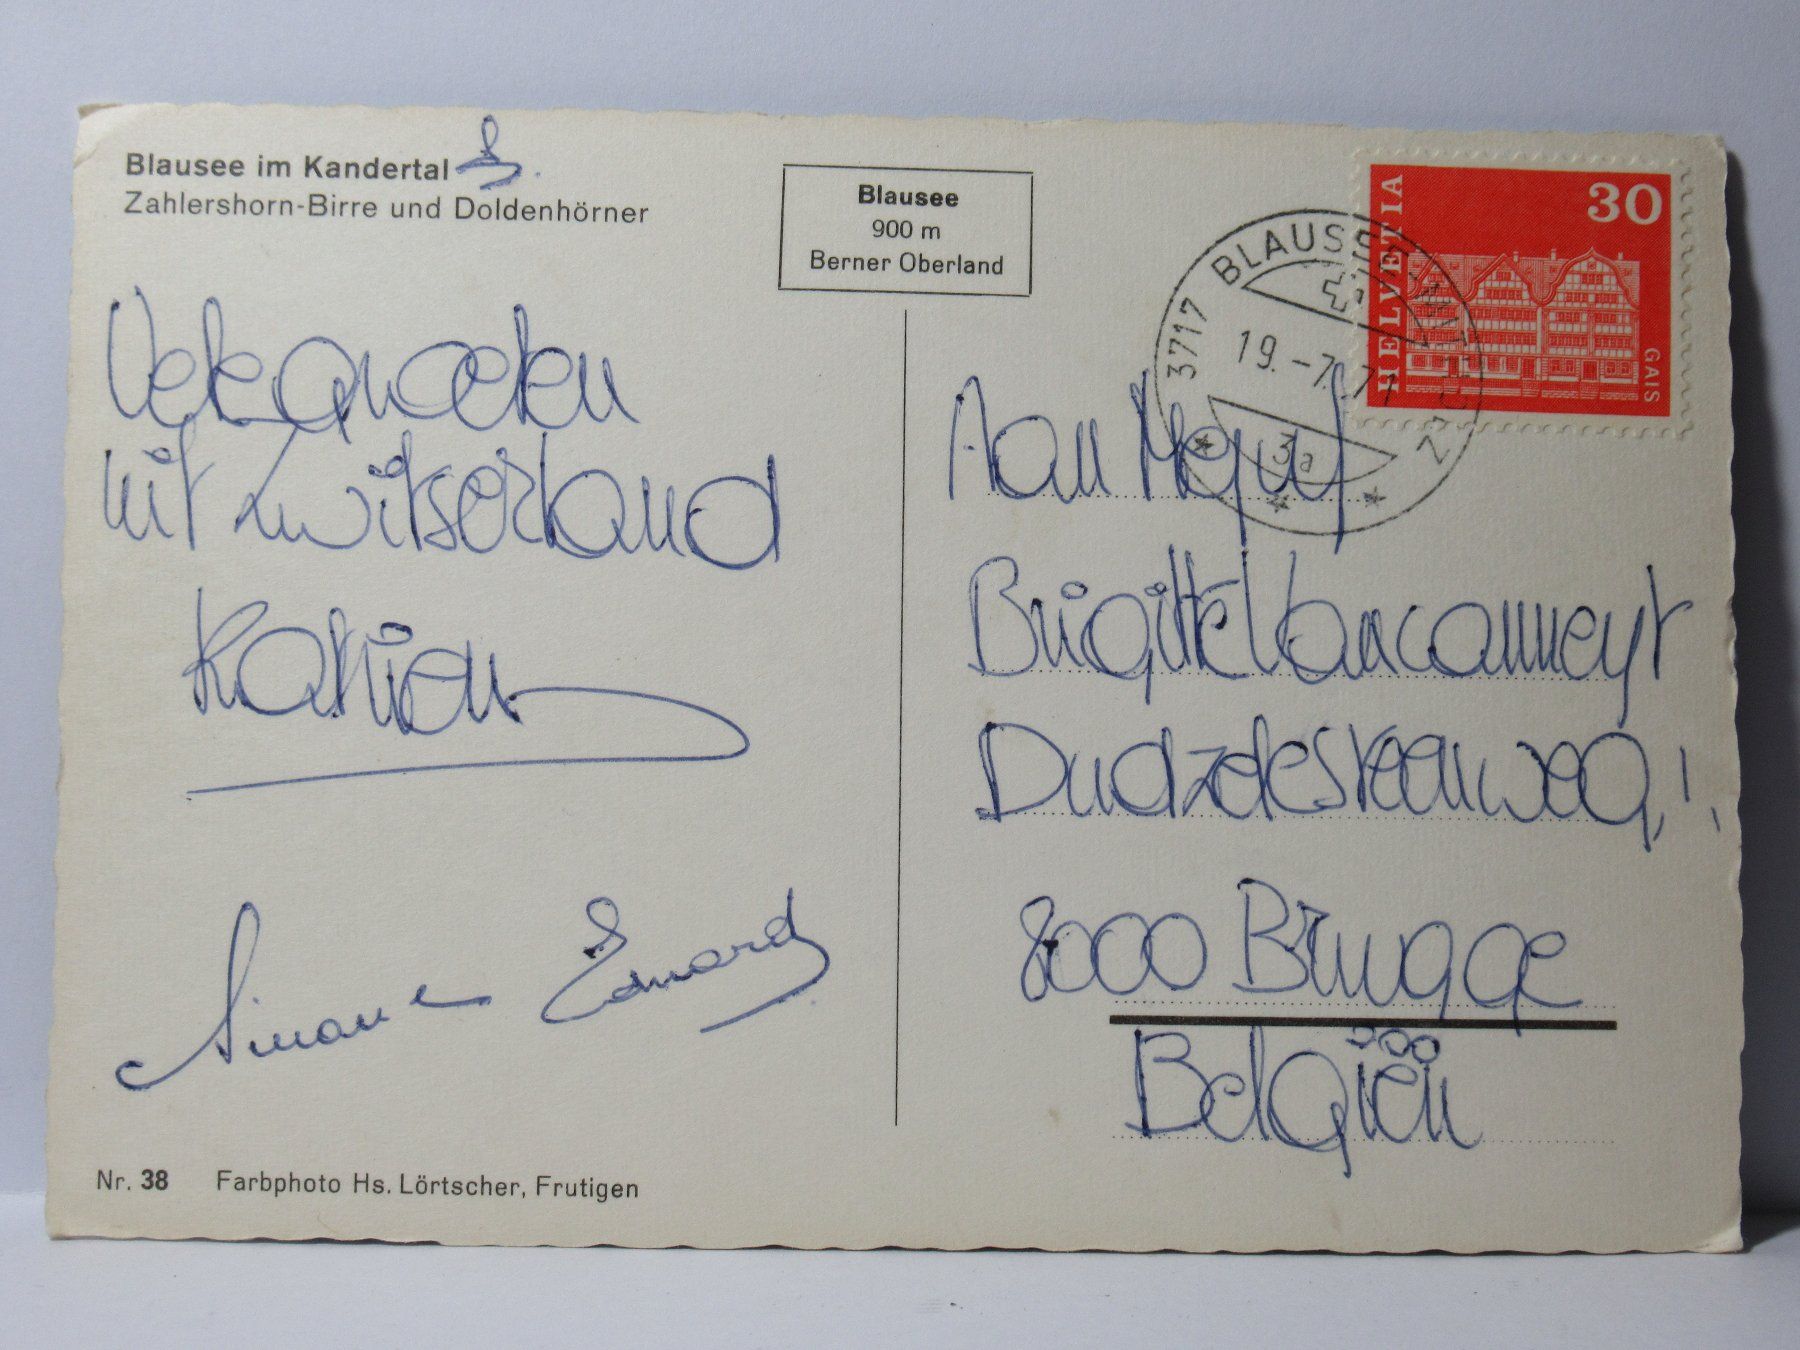 Blausee im Kandertal
Zahlershorn-Birre und Doldenhörner
Blausee
900 m
Berner Oberland
HELVETIA
30
GAIS
3717 BLAUSEE-MITHOLZ
19.-7.71
3a
uit Zwitserland
Katrien
Simone Edward
Aan Mejuf
Brigitte Vancanneyt
Dudzelesteenweg, 1,
8000 Brugge
Belgiën
Nr. 38 Farbphoto Hs. Lörtscher, Frutigen